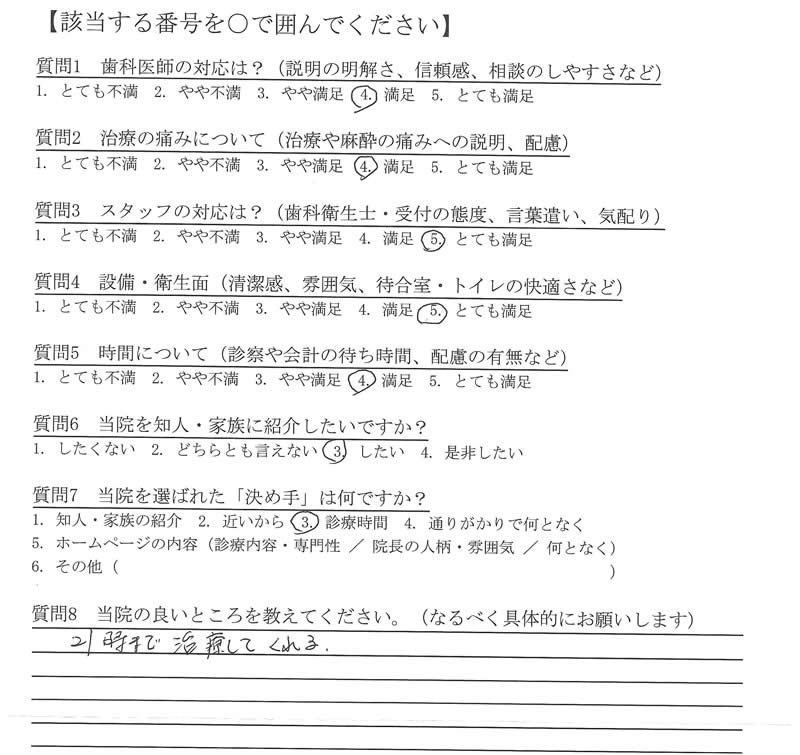 【該当する番号を〇で囲んでください】
質問1　歯科医師の対応は？（説明の明解さ、信頼感、相談のしやすさなど）
1. とても不満　2. やや不満　3. やや満足　4. 満足　5. とても満足
質問2　治療の痛みについて（治療や麻酔の痛みへの説明、配慮）
1. とても不満　2. やや不満　3. やや満足　4. 満足　5. とても満足
質問3　スタッフの対応は？（歯科衛生士・受付の態度、言葉遣い、気配り）
1. とても不満　2. やや不満　3. やや満足　4. 満足　5. とても満足
質問4　設備・衛生面（清潔感、雰囲気、待合室・トイレの快適さなど）
1. とても不満　2. やや不満　3. やや満足　4. 満足　5. とても満足
質問5　時間について（診察や会計の待ち時間、配慮の有無など）
1. とても不満　2. やや不満　3. やや満足　4. 満足　5. とても満足
質問6　当院を知人・家族に紹介したいですか？
1. したくない　2. どちらとも言えない　3. したい　4. 是非したい
質問7　当院を選ばれた「決め手」は何ですか？
1. 知人・家族の紹介　2. 近いから　3. 診療時間　4. 通りがかりで何となく
5. ホームページの内容（診療内容・専門性 ／ 院長の人柄・雰囲気 ／ 何となく）
6. その他（　　　　　　　　　　　　　　　　　　　　）
質問8　当院の良いところを教えてください。（なるべく具体的にお願いします）
21時まで治療してくれる.